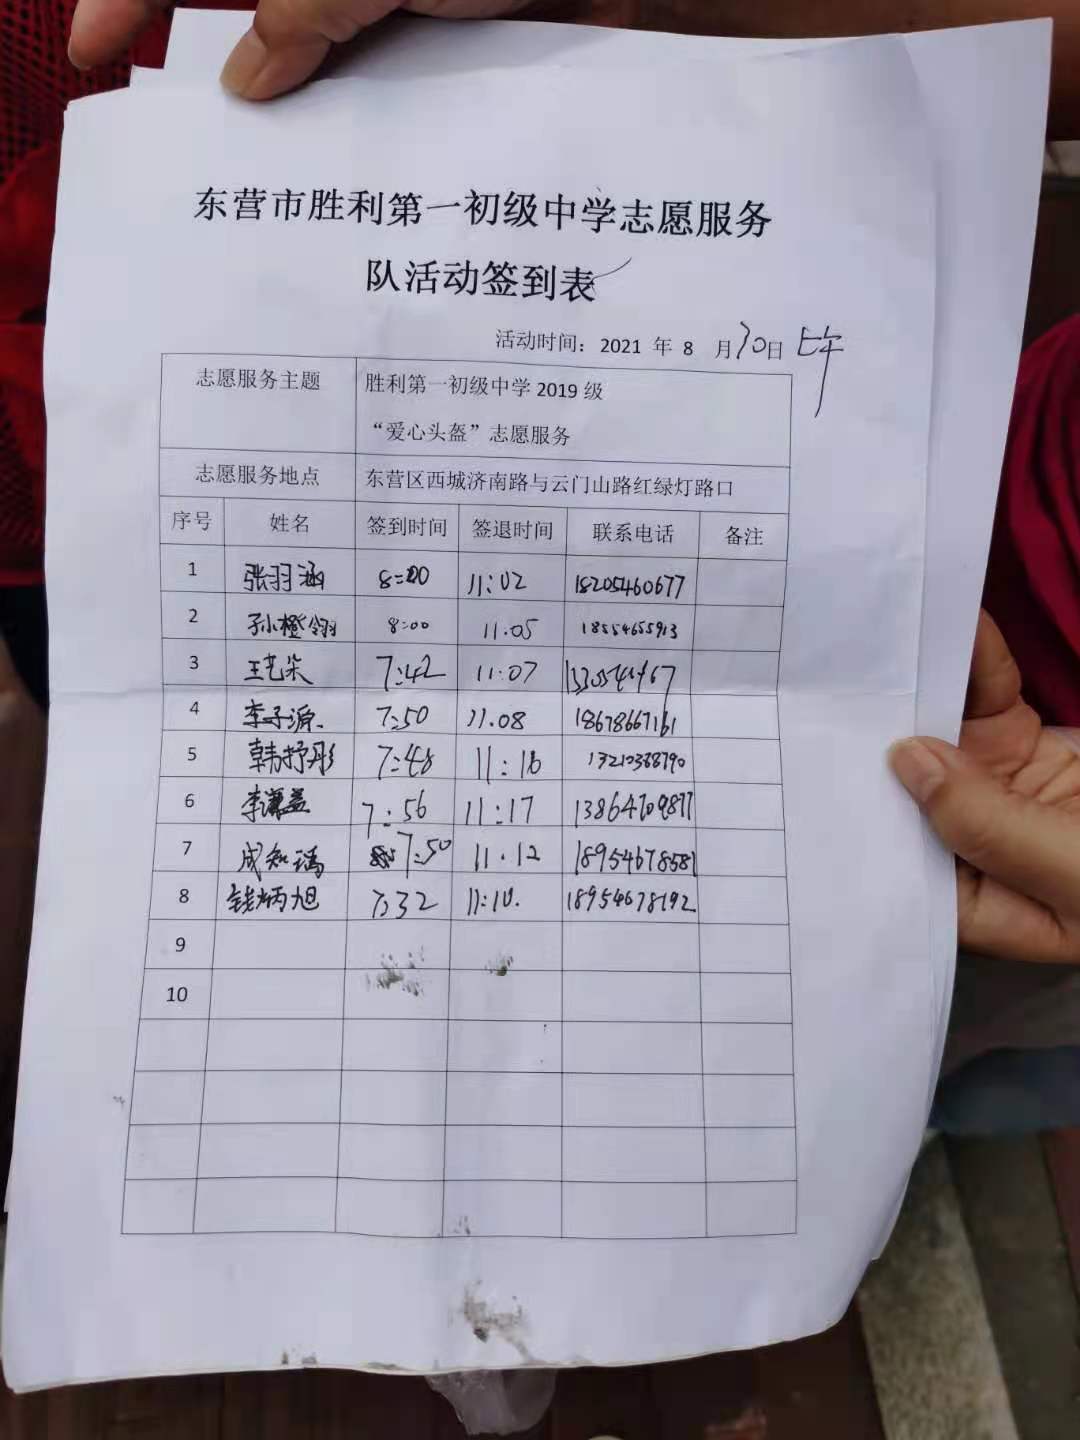 东营市胜利第一初级中学志愿服务
队活动签到表
活动时间：2021 年 8 月30日 上午
志愿服务主题 胜利第一初级中学 2019 级
“爱心头盔”志愿服务
志愿服务地点 东营区西城济南路与云门山路红绿灯路口
序号 姓名 签到时间 签退时间 联系电话 备注
1 张羽涵 8:00 11:02 18205460677
2 孙橙翎 8:00 11.05 18554655913
3 王艺朵 7:42 11:07
4 李子源 7:50 11.08 18678667161
5 韩抒彤 7:48 11:16 13210388790
6 李谦益 7:56 11:17 13864709877
7 成知瑀 7:50 11.12 18954678581
8 钱炳旭 7:32 11:10. 18954678192
9
10